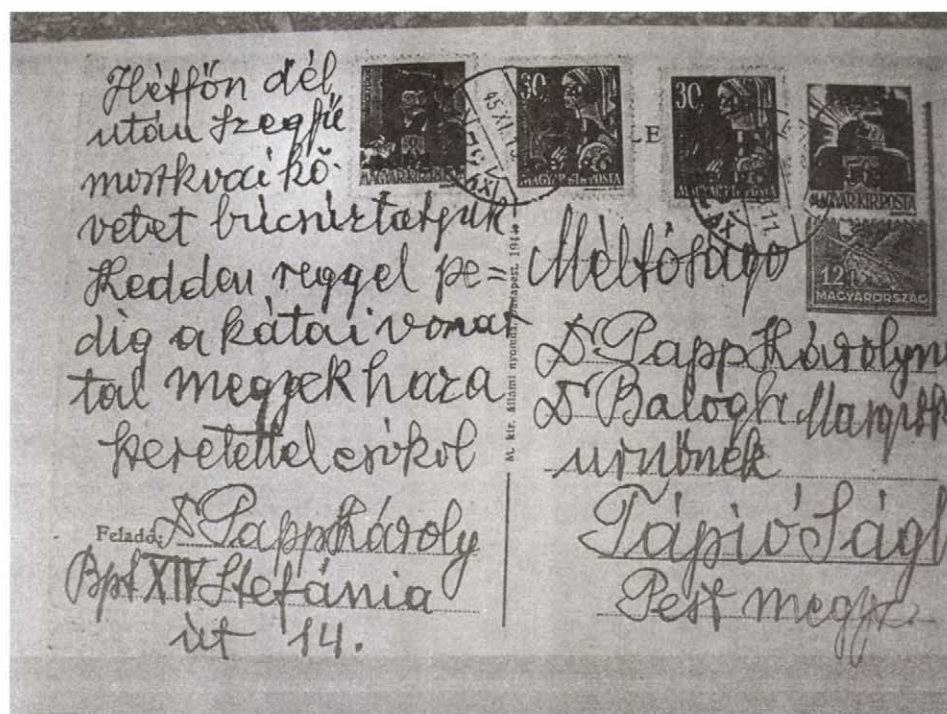 Hétfőn dél
után Szegfű
moszkvai kö-
vetet búcsúztatjuk
Kedden reggel pe=
dig a kátai vonat
tal megyek haza
Szeretettel csókol
Feladó: Dr Papp Károly
Bpt XIV Stefánia
út 14.
30
30
MAGYAR KIR. POSTA
MAGYAR KIR. POSTA
MAGYAR KIR. POSTA
MAGYAR KIR. POSTA
12
MAGYARORSZÁG
LE
M. kir. állami nyomda, Budapest. 194
Méltóságo
Dr Papp Károlyn
Dr Balogh Margit
úrnőnek
Tápió Ság
Pest megye